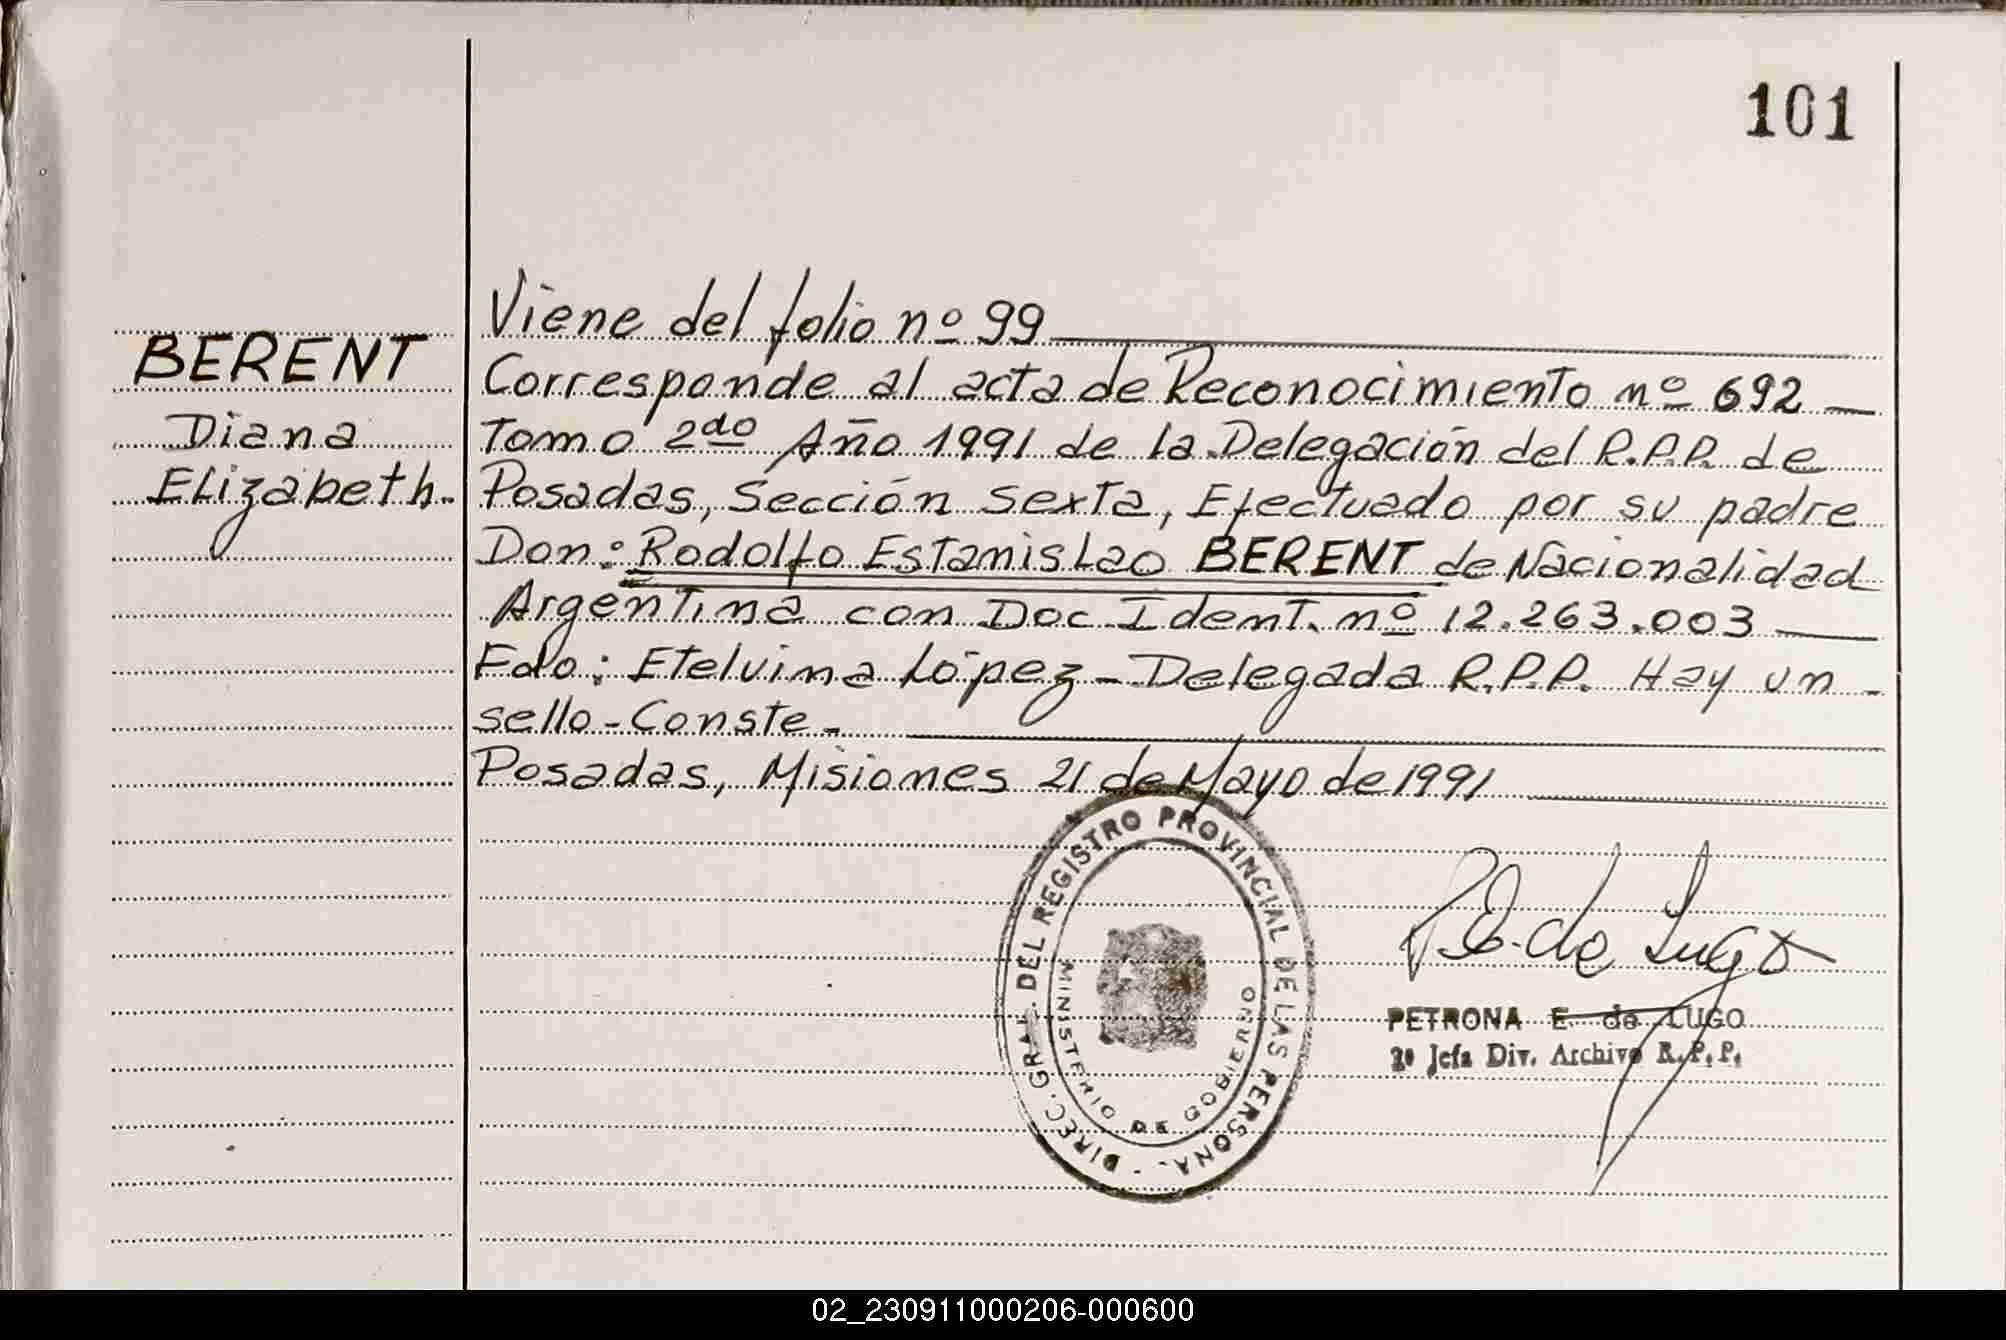 101
Viene del folio nº 99
BERENT
Corresponde al acta de Reconocimiento nº 692
Diana
Tomo 2do Año 1991 de la Delegación del R.P.P. de
Elizabeth.
Posadas, Sección Sexta, Efectuado por su padre
Don: Rodolfo Estanislao BERENT de Nacionalidad
Argentina con Doc Ident. nº 12.263.003
Fdo: Etelvina López - Delegada R.P.P. Hay un -
sello - Conste -
Posadas, Misiones 21 de Mayo de 1991
DIREC. GRAL. DEL REGISTRO PROVINCIAL DE LAS PERSONA.
MINISTERIO DE GOBIERNO
P E. de Lugo
PETRONA E. de LUGO
2º Jefa Div. Archivo R. P. P.
02_230911000206-000600